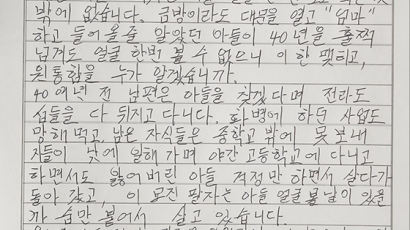 밖에 없습니다. 금방이라도 대문을 열고 "엄마"
하고 들어올줄 알았던 아들이 40년을 훌쩍
넘겨도 얼굴 한번 볼 수 없으니 이 한 맺히고,
원통함을 누가 알겠습니까.
40여년 전 남편은 아들을 찾겠다며 전라도
섬들을 다 뒤지고 다니다. 화병에 하던 사업도
망해 먹고, 남은 자식들은 중학교 밖에 못 보내
지들이 낮에 일해 가며 야간 고등학교에 다니고
하면서도 잃어버린 아들 걱정만 하면서 살다가
돌아 갔고, 이 모진 팔자는 아들 얼굴 볼날이 있을
까 숨만 붙어서 살고 있습니다.